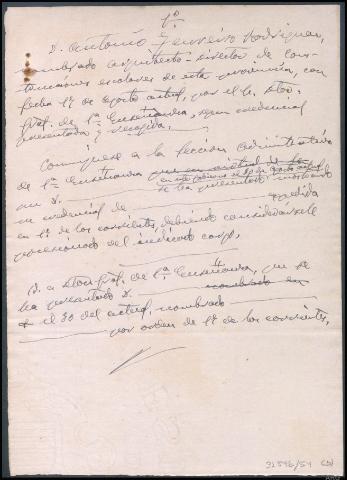 1º
D. Antonio Ferreiro Rodriguez,
nombrado arquitecto-director de cons-
trucciones escolares de esta provincia, con
fecha 1º de agosto actual, por el Ilmo. Sr. Dtor.
gral. de 1ª Enseñanza, según credencial
presentada y recogida.
Comuníquese a la Sección Administrativa
de 1ª Enseñanza que en virtud de
se ha presentado,
su credencial de expedida
en 1º de los corrientes, debiendo considerársele
posesionado del indicado cargo,
D. a Dtor. gral. de 1ª Enseñanza, que se
ha presentado D. nombrado en
el 30 del actual, nombrado
por orden de 1º de los corrientes.
32596/54